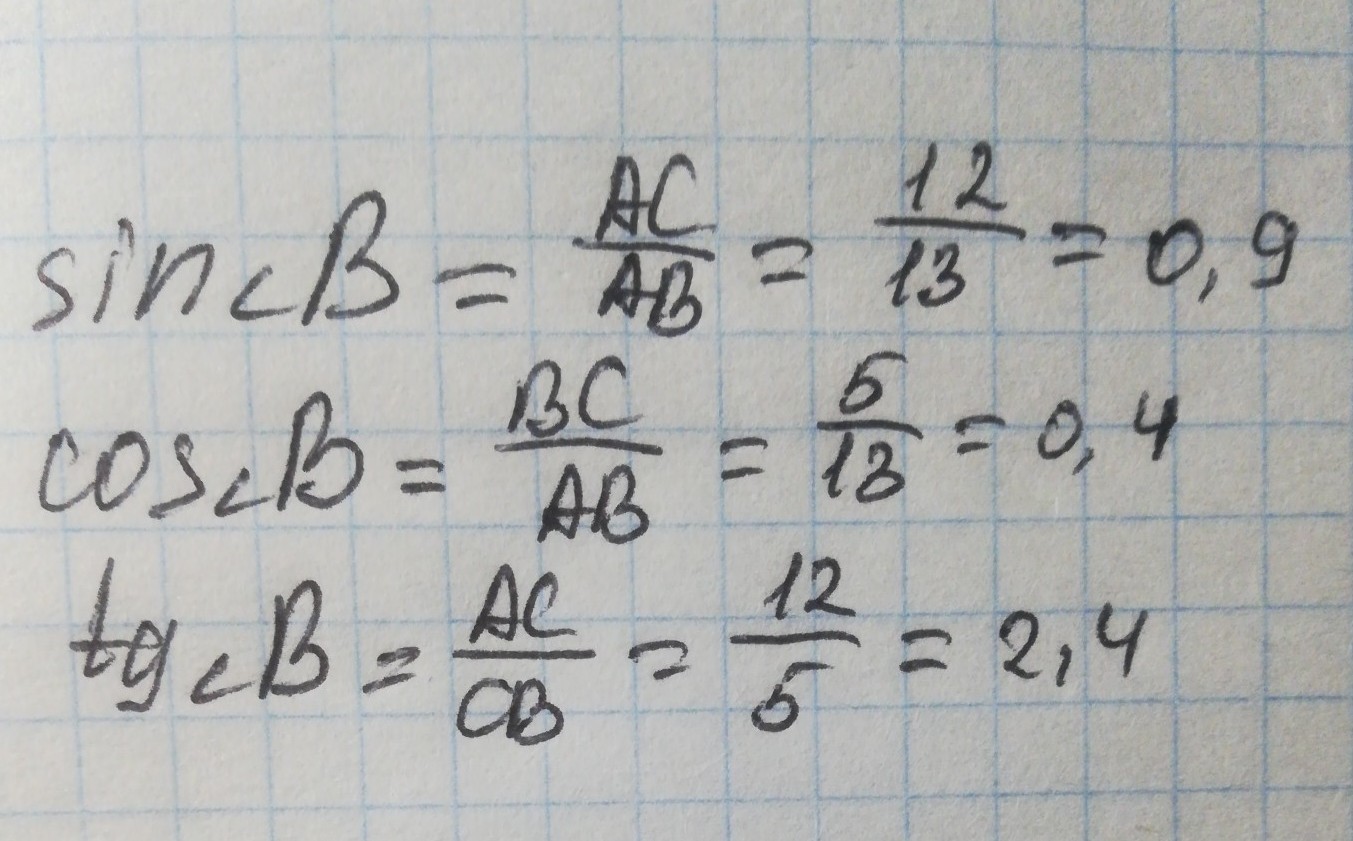 sin∠B = AC/AB = 12/13 = 0,9
cos∠B = BC/AB = 5/13 = 0,4
tg∠B = AC/CB = 12/5 = 2,4